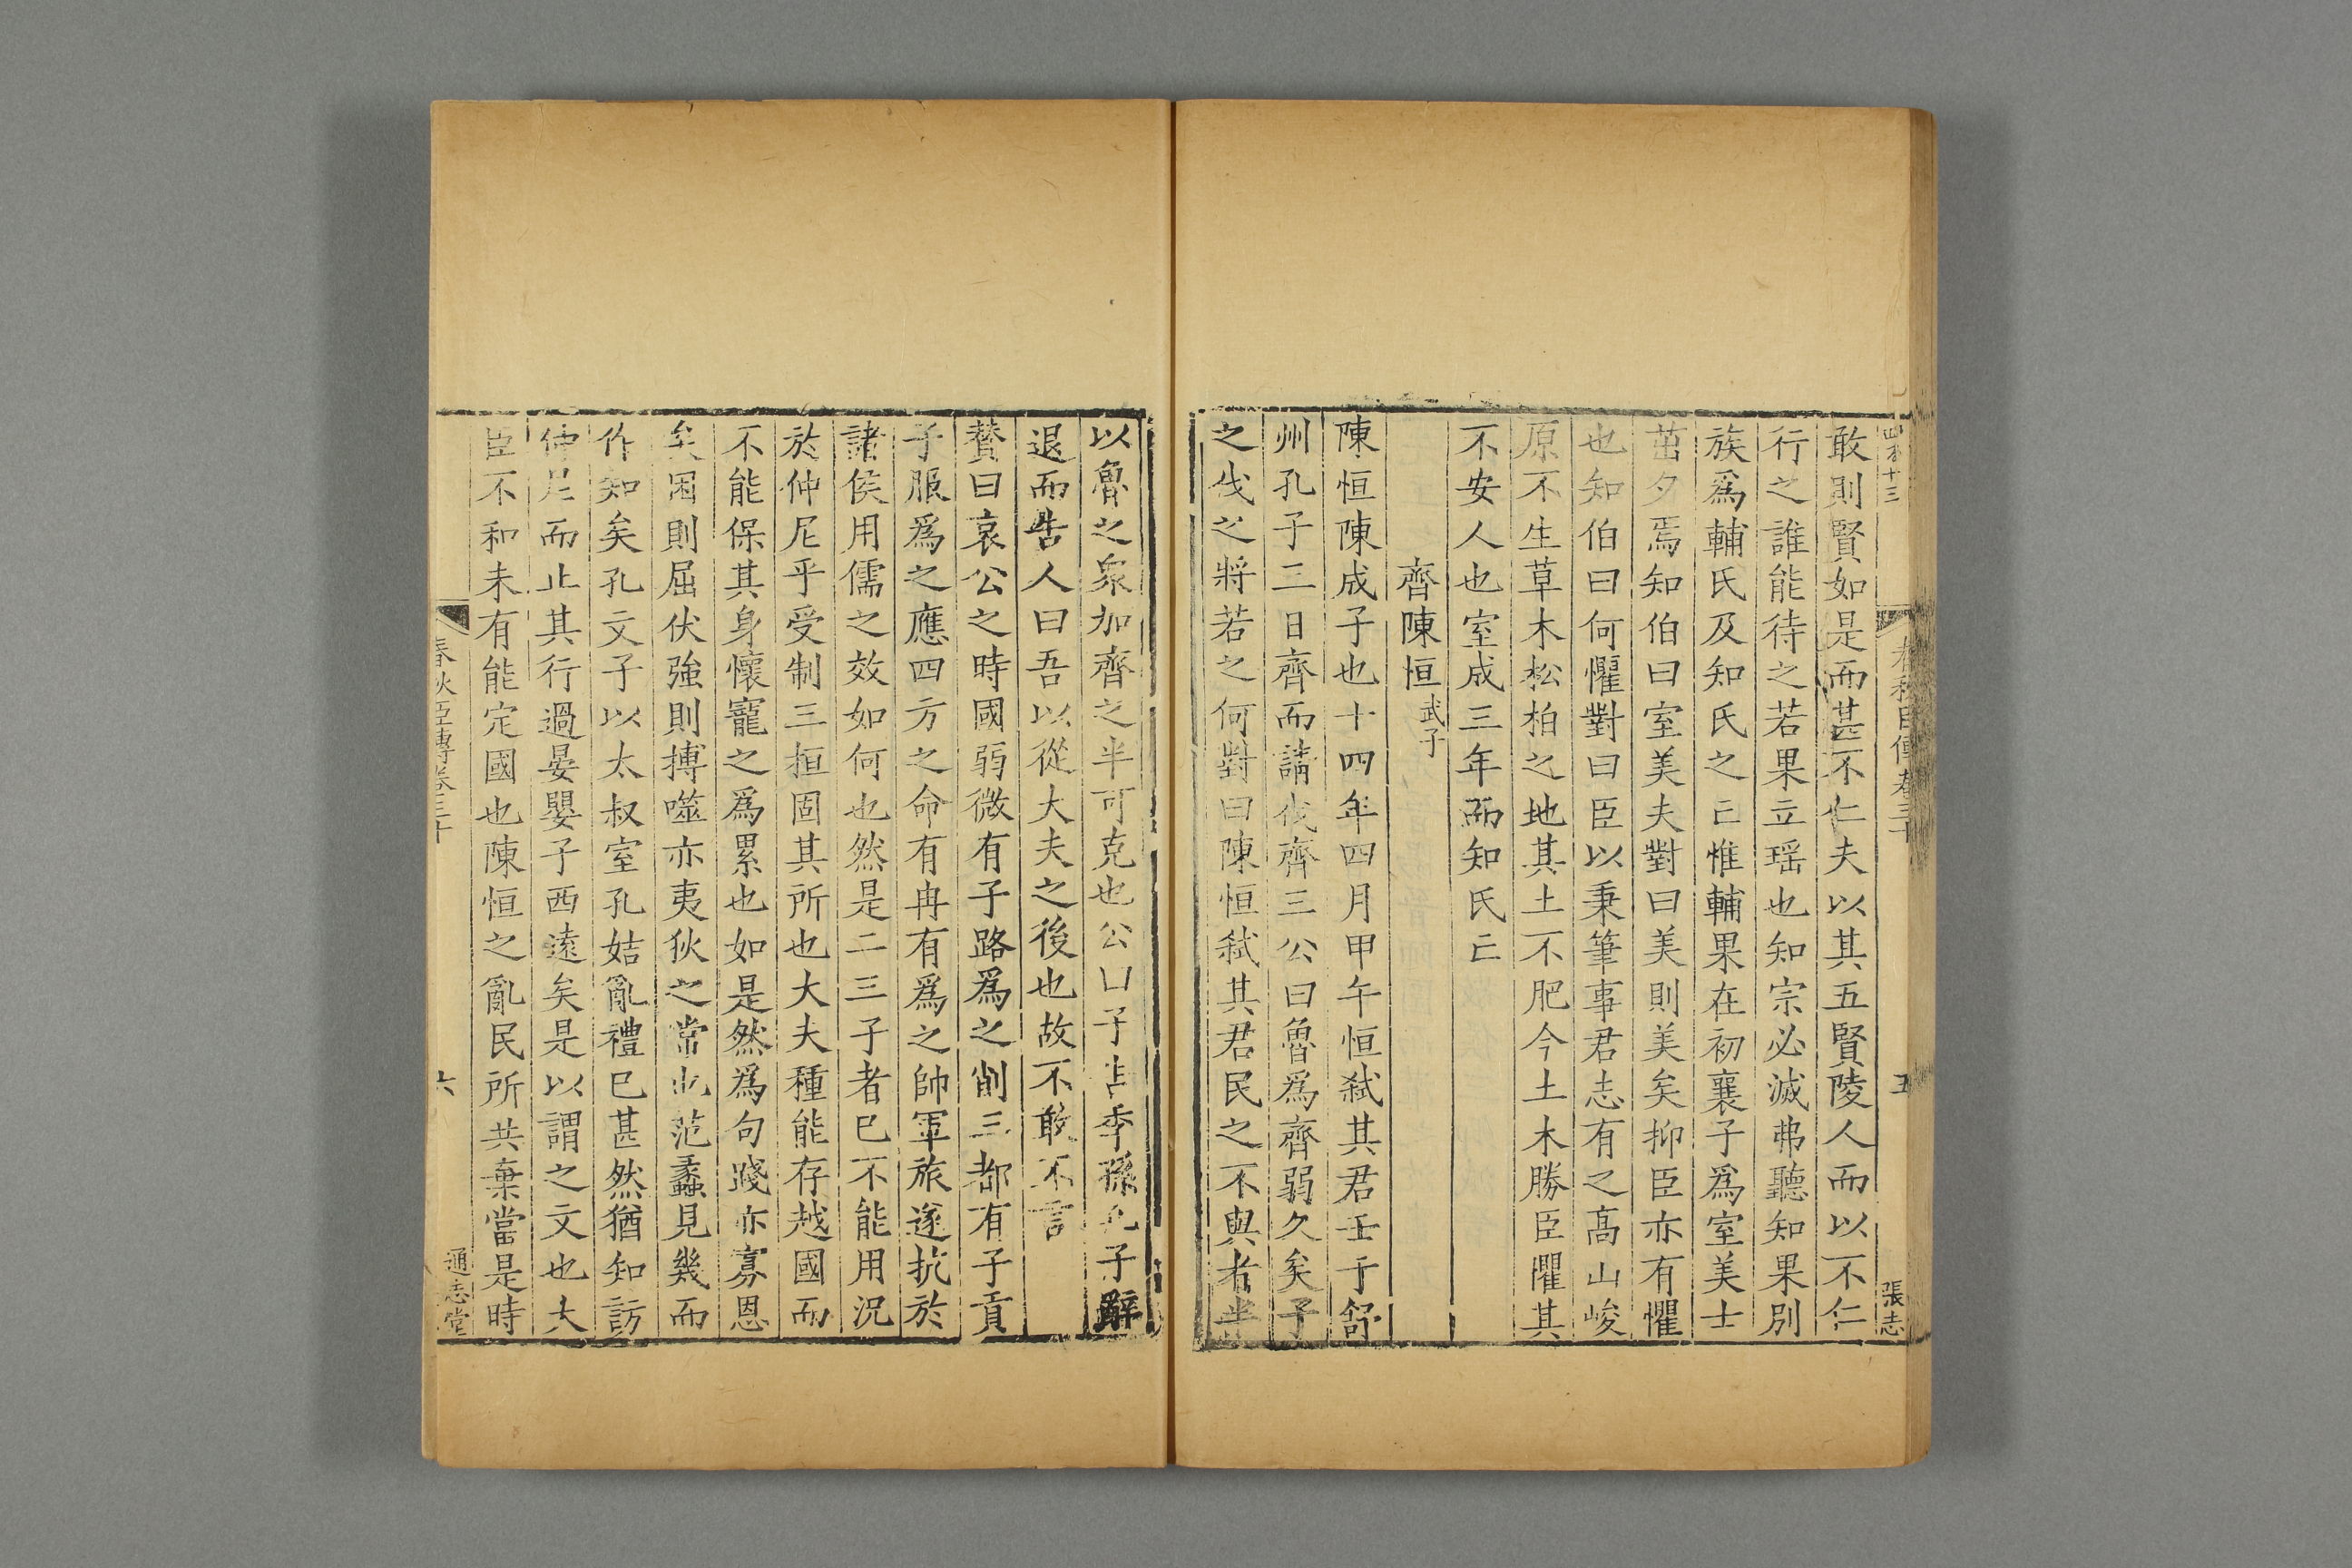 四百十三
春秋臣傳卷三十
五
張志
敢則賢如是而甚不仁夫以其五賢陵人而以不仁
行之誰能待之若果立瑶也知宗必滅弗聽知果別
族爲輔氏及知氏之亡惟輔果在初襄子爲室美士
茁夕焉知伯曰室美夫對曰美則美矣抑臣亦有懼
也知伯曰何懼對曰臣以秉筆事君志有之高山峻
原不生草木松柏之地其土不肥今土木勝臣懼其
不安人也室成三年而知氏亡
齊陳恒武子
陳恒陳成子也十四年四月甲午恒弑其君壬于舒
州孔子三日齊而請伐齊三公曰魯爲齊弱久矣子
之伐之將若之何對曰陳恒弑其君民之不與者半
以魯之衆加齊之半可克也公曰子告季孫孔子辭
退而告人曰吾以從大夫之後也故不敢不言
贊曰哀公之時國弱微有子路爲之削三都有子貢
子服爲之應四方之命有冉有爲之帥軍旅遂抗於
諸侯用儒之效如何也然是二三子者已不能用況
於仲尼乎受制三桓固其所也大夫種能存越國而
不能保其身懷寵之爲累也如是然爲句踐亦寡恩
矣困則屈伏強則搏噬亦夷狄之常也范蠡見幾而
作知矣孔文子以太叔室孔姞亂禮已甚然猶知訪
仲尼而止其行過晏嬰子西遠矣是以謂之文也大
臣不和未有能定國也陳恒之亂民所共棄當是時
春秋臣傳卷三十
六
通志堂